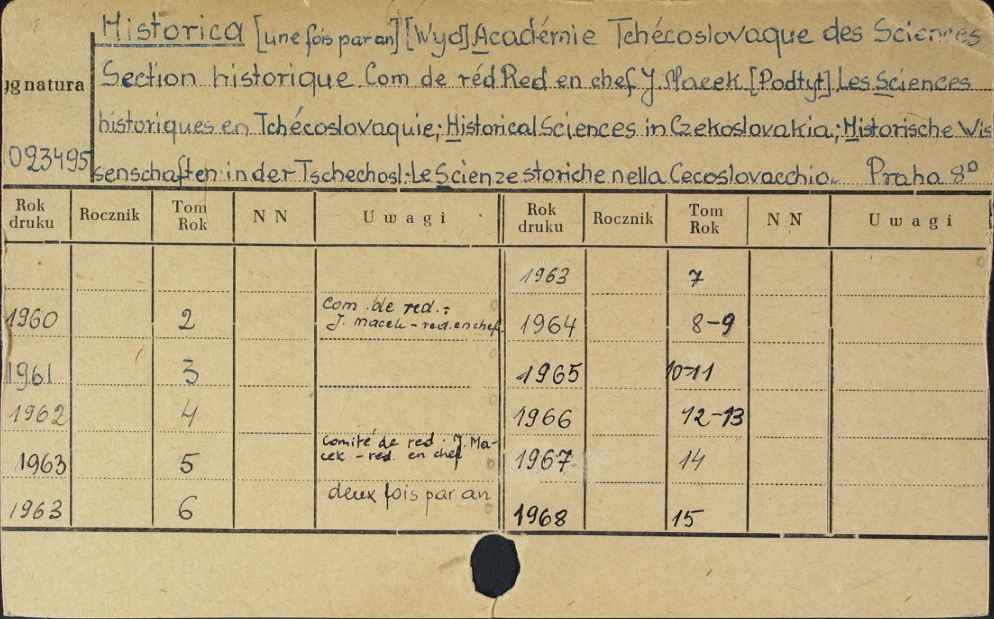 Historica [une fois par an] [Wyd] Académie Tchécoslovaque des Sciences
Section historique Com de réd Red en chef J. Macek [Podtyt] Les Sciences
ygnatura
historiques en Tchécoslovaquie; Historical Sciences in Czekoslovakia; Historische Wis
023495
senschaften in der Tschechosl.; Le Scienze storiche nella Cecoslovacchia. Praha 8°
Rok druku Rocznik Tom Rok NN Uwagi Rok druku Rocznik Tom Rok NN Uwagi
1963 7
1960 2 Com. de red.: J. Macek - red. en chef 1964 8-9
1961 3 1965 10-11
1962 4 1966 12-13
1963 5 Comité de red. J. Ma-cek - red. en chef 1967 14
1963 6 deux fois par an 1968 15